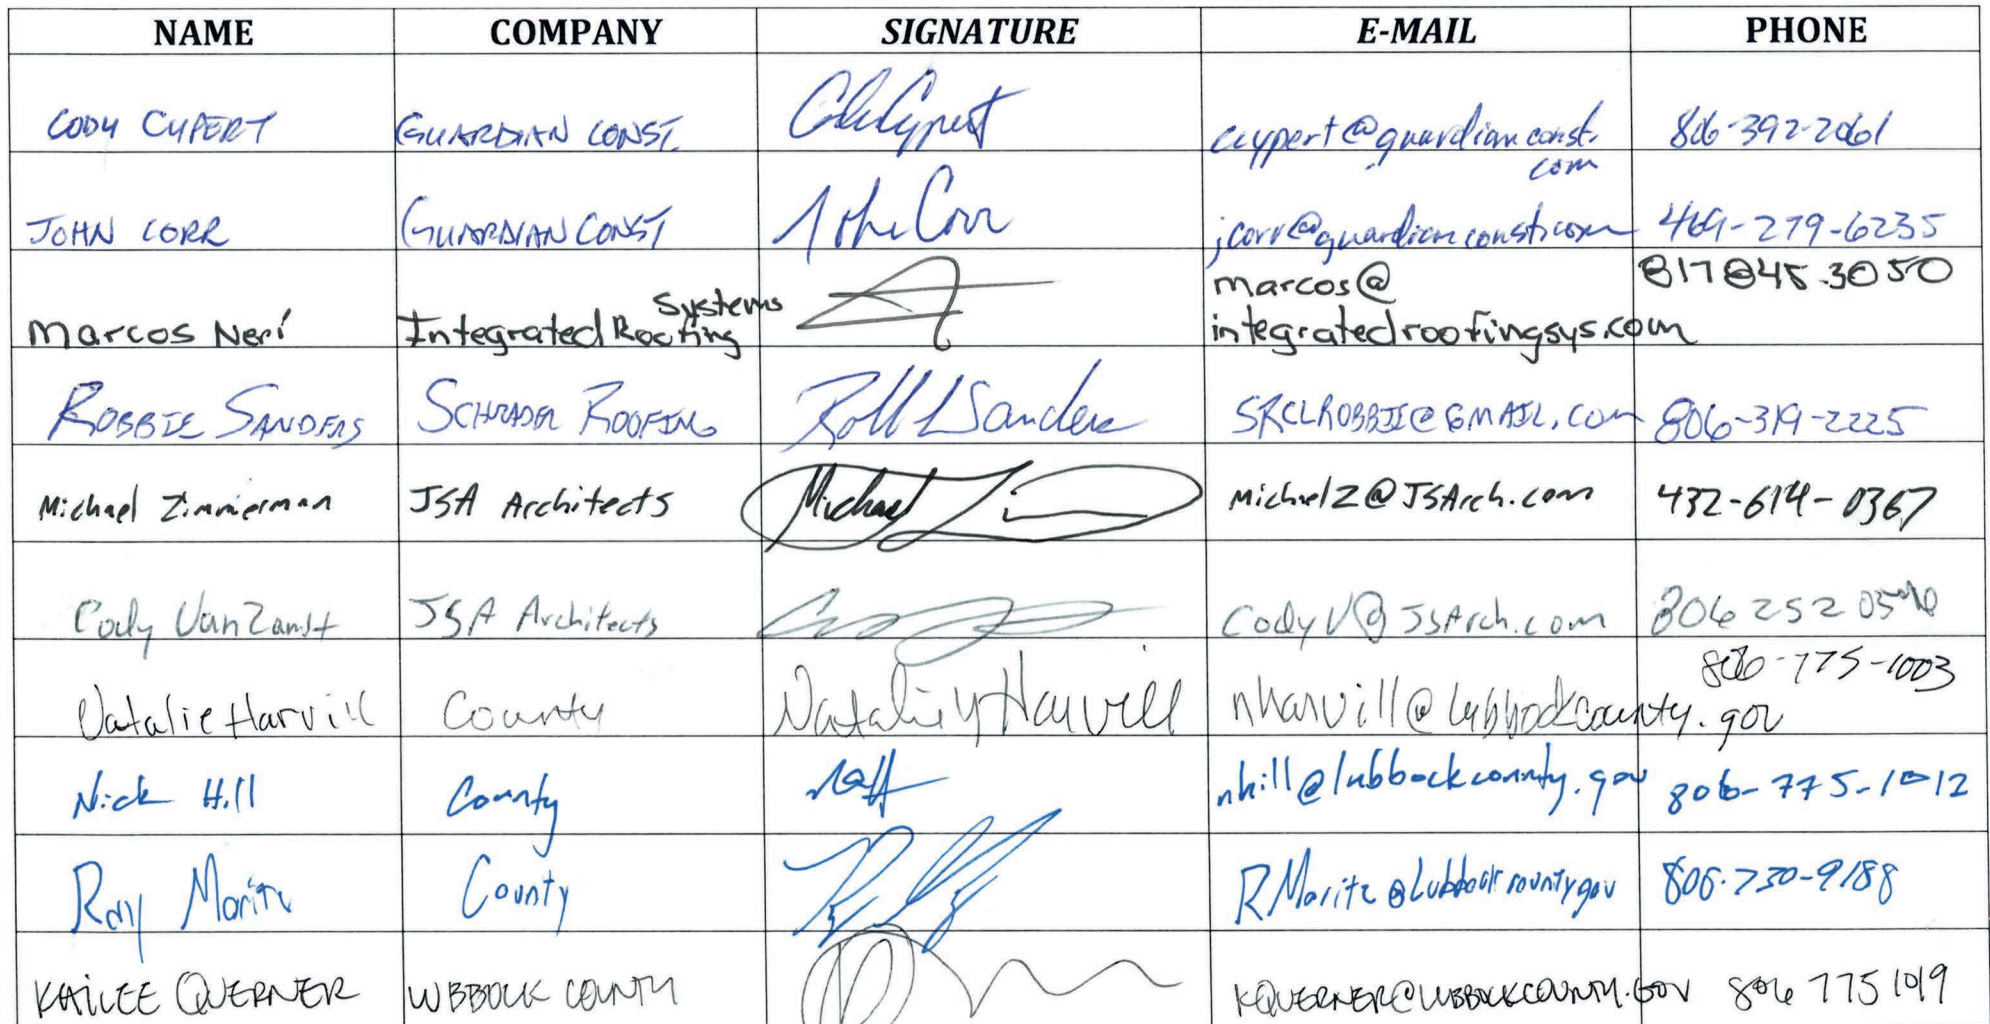 NAME COMPANY SIGNATURE E-MAIL PHONE
CODY CYPERT GUARDIAN CONST. ccypert@guardianconst. 806-392-2061
com
JOHN CORR GUARDIAN CONST John Corr jcorr@guardianconst.com 469-279-6235
marcos@ 817 845.3050
Systems
Marcos Neri Integrated Roofing integratedroofingsys.com
ROBBIE SANDERS SCHRADER ROOFING SRCLROBBIE@GMAIL.COM 806-319-2225
Michael Zimmerman JSA Architects Michael Z MichaelZ@JSArch.com 432-614-0367
Cody VanZandt JSA Architects CodyV@JSArch.com 806 252
806-775-1003
Natalie Harvill County Natalie Harvill nharvill@lubbockcounty.gov
Nick Hill County nhill@lubbockcounty.gov 806-775-1012
Ray Moritz County RMoritz@Lubbockcounty.gov 806-730-9188
KAILEE QUERNER LUBBOCK COUNTY KQUERNER@LUBBOCKCOUNTY.GOV 806 775 1019